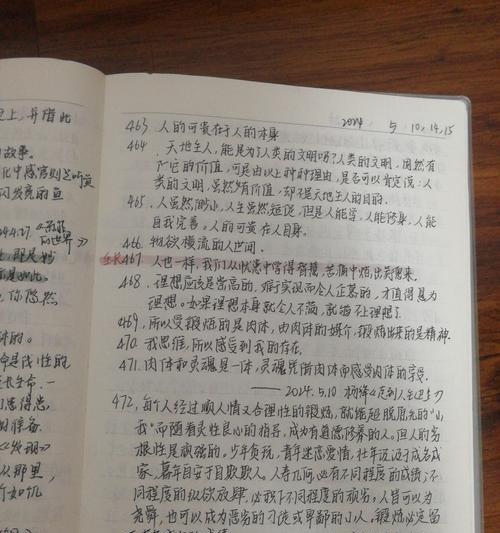 上，并借此
故事。
化中感官则是听觉
闪发亮的鱼
4.27《苏菲
的世界》
你隐然
体的。
命是感性的
生命．一
《发现》
从那里，
2024 5 10.14.15
463．人的可贵在于人的本身
464．天地生人，能是为了人类的文明吗？人类的文明，固然有
它的价值，可是由以上种种理由，是否可以肯定说：人
类的文明，虽然有价值，却不是天地生人的目的．
465．人虽然渺小，人生虽然短促，但是人能学，人能修身，人能
自我完善。人的可贵在人自身。
466．物欲横流的人世间．
467．人也一样，我们从忧患中学得智慧，苦痛中炼出美德来。
468．理想应该是崇高的，难于实现而令人企慕的，才值得悬为
理想。如果理想本身就令人不满，就够不上理想了．
469．所以受锻炼的是肉体，由肉体的媒介，锻炼出来的是精神．
470．我思维，所以感受到我的存在．
471．肉体和灵魂是一体，灵魂凭借肉体而感受肉体的享受．
——2024.5.10 杨绛《走到人生边上》
472．每个人经过顺人情又合理性的锻炼，就能超脱原先的“小
我”而随着灵性良心的指导，成为有道德修养的人。但人的劣
根性是顽强的，少年贪玩，青年迷恋爱情，壮年汲汲于成名成
家，暮年自安于自欺欺人。人寿几何，必有不同程度的成绩；不
同程度的纵欲放肆，必找不同程度的顽劣，人皆可以为
尧舜，也可以成为恶劣的习徒或卑鄙的小人。锻炼必定留